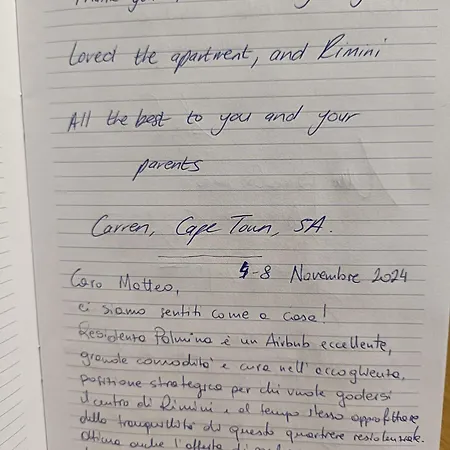 Loved the apartment, and Rimini
All the best to you and your
parents
Carren, Cape Town, SA.
4-8 Novembre 2024
Caro Matteo,
ci siamo sentiti come a casa!
Residenza Palmina è un Airbnb eccellente,
grande comodità e cura nell'accoglienza,
posizione strategica per chi vuole godersi
il centro di Rimini e al tempo stesso approfittare
della tranquillità di questo quartiere residenziale.
Ottima anche l'offerta di